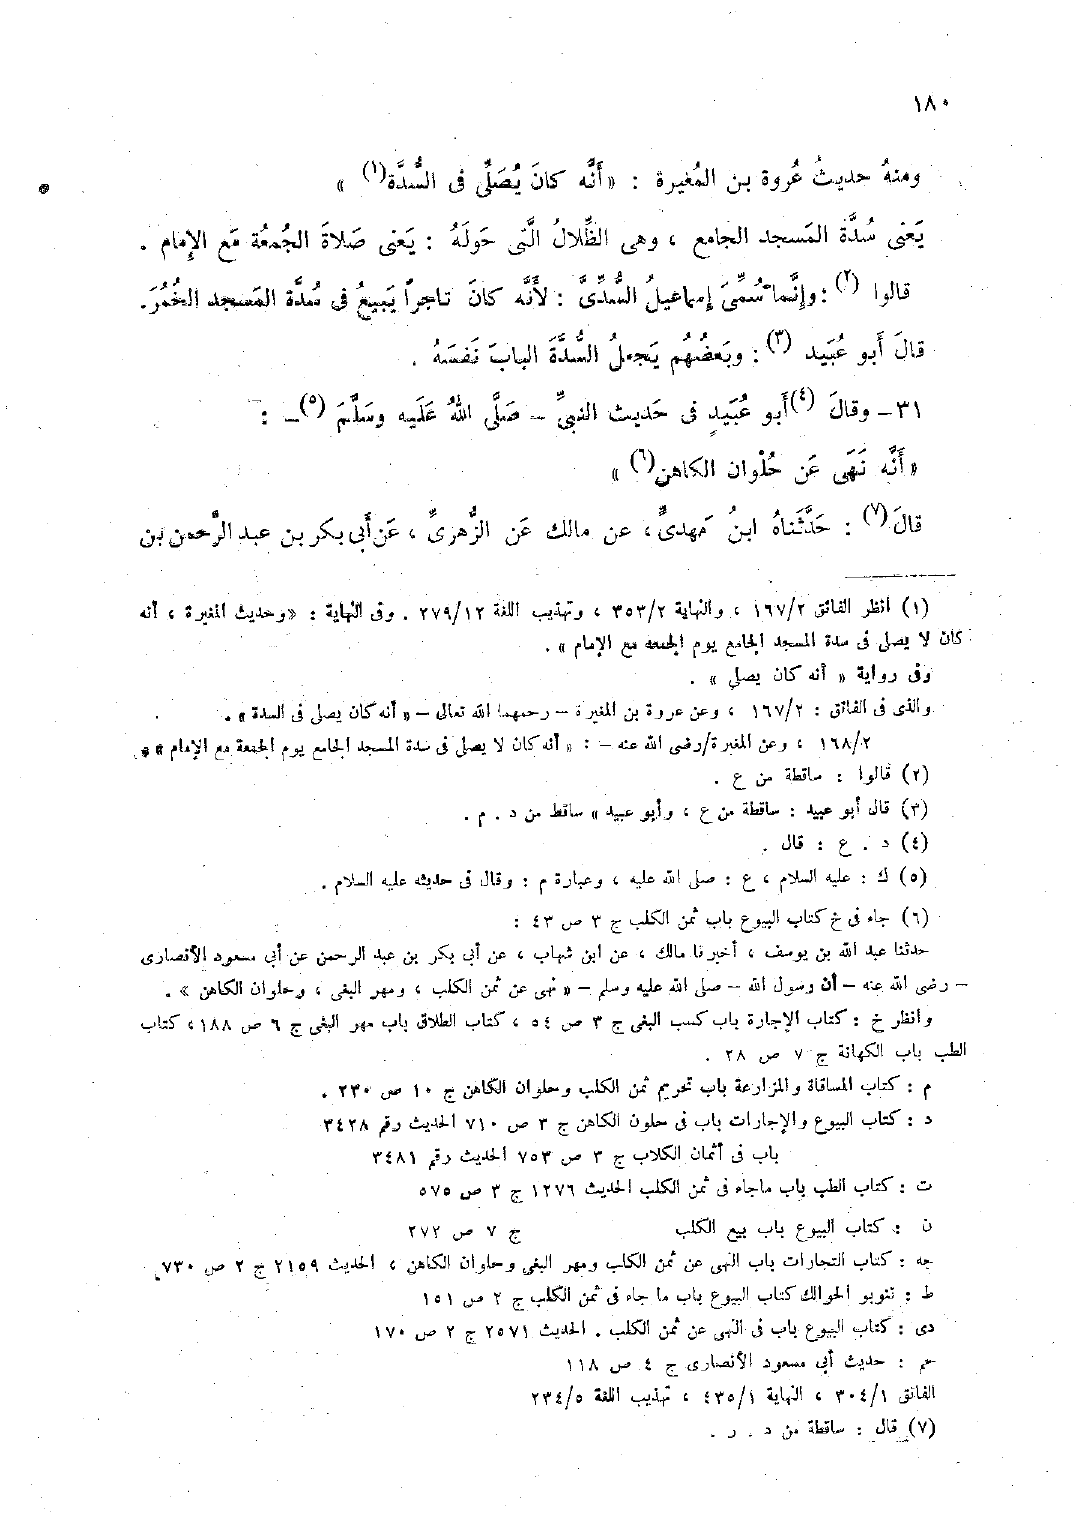 ١٨٠
ومنهُ حديثُ عُروة بن المُغيرة : « أَنَّه كانَ يُصَلِّى فى السُّدَّة(١) »
يَعنى سُدَّةَ المَسجد الجامع ، وهى الظِّلالُ الَّتى حَولَهُ : يَعنى صَلاةَ الجُمعُة مَع الإِمام .
قالوا (٢) : وإِنَّما سُمِّىَ إِسماعيلُ السُّدِّىَّ : لأَنَّه كانَ تاجراً يَبيعُ فى سُدَّة المَسجد الخُمُرَ.
قالَ أَبو عُبَيد (٣) : وبَعضُهُم يَجعلُ السُّدَّةَ البابَ نَفسَهُ .
٣١ – وقالَ (٤) أَبو عُبَيدٍ فى حَديث النبىِّ – صَلَّى اللهُ عَلَيه وسَلَّمَ (٥) – :
« أَنَّه نَهَى عَن حُلْوان الكاهن(٦) »
قالَ(٧) : حَدَّثَناهُ ابنُ مَهدىٍّ ، عن مالك عَن الزُّهرىِّ ، عَن أَبى بكر بن عبد الرَّحمن بن
(١) انظر الفائق ١٦٧/٢ ، والنهاية ٣٥٣/٢ ، وتهذيب اللغة ٢٧٩/١٢ . وفى النهاية : «وحديث المغيرة ، أنه
كان لا يصلى فى سدة المسجد الجامع يوم الجمعه مع الإمام » .
وفى رواية « أنه كان يصلى » .
والذى فى الفائق : ١٦٧/٢ ، وعن عروة بن المغيرة – رحمهما الله تعالى – « أنه كان يصلى فى السدة » .
١٦٨/٢ ، وعن المغيرة/رضى الله عنه – : « أنه كان لا يصلى فى سدة المسجد الجامع يوم الجمعة مع الإمام » .
(٢) قالوا : ساقطة من ع .
(٣) قال أبو عبيد : ساقطة من ع ، وأبو عبيد » ساقط من د . م .
(٤) د . ع : قال .
(٥) ك : عليه السلام ، ع : صلى الله عليه ، وعبارة م : وقال فى حديثه عليه السلام .
(٦) جاء فى خ كتاب البيوع باب ثمن الكلب ج ٣ ص ٤٣ :
حدثنا عبد الله بن يوسف ، أخبرنا مالك ، عن ابن شهاب ، عن أبي بكر بن عبد الرحمن عن أبي مسعود الأنصارى
– رضى الله عنه – أن رسول الله – صلى الله عليه وسلم – « نهى عن ثمن الكلب ، ومهر البغى ، وحلوان الكاهن » .
وانظر خ : كتاب الإجارة باب كسب البغى ج ٣ ص ٥٤ ، كتاب الطلاق باب مهر البغى ج ٦ ص ١٨٨ ، كتاب
الطب باب الكهانة ج ٧ ص ٢٨ .
م : كتاب المساقاة والمزارعة باب تحريم ثمن الكلب وحلوان الكاهن ج ١٠ ص ٢٣٠ .
د : كتاب البيوع والإجارات باب فى حلون الكاهن ج ٣ ص ٧١٠ الحديث رقم ٣٤٢٨
باب فى أثمان الكلاب ج ٣ ص ٧٥٣ الحديث رقم ٣٤٨١
ت : كتاب الطب باب ماجاء فى ثمن الكلب الحديث ١٢٧٦ ج ٣ ص ٥٧٥
ن : كتاب البيوع باب بيع الكلب ج ٧ ص ٢٧٢
جه : كتاب التجارات باب النهى عن ثمن الكلب ومهر البغى وحلوان الكاهن ، الحديث ٢١٥٩ ج ٢ ص ٧٣٠.
ط : تنوير الحوالك كتاب البيوع باب ما جاء فى ثمن الكلب ج ٢ ص ١٥١
دى : كتاب البيوع باب فى النهى عن ثمن الكلب . الحديث ٢٥٧١ ج ٢ ص ١٧٠
حم : حديث أبي مسعود الأنصارى ج ٤ ص ١١٨
الفائق ٣٠٤/١ ، النهاية ٤٣٥/١ ، تهذيب اللغة ٢٣٤/٥
(٧) قال : ساقطة من د . ر .